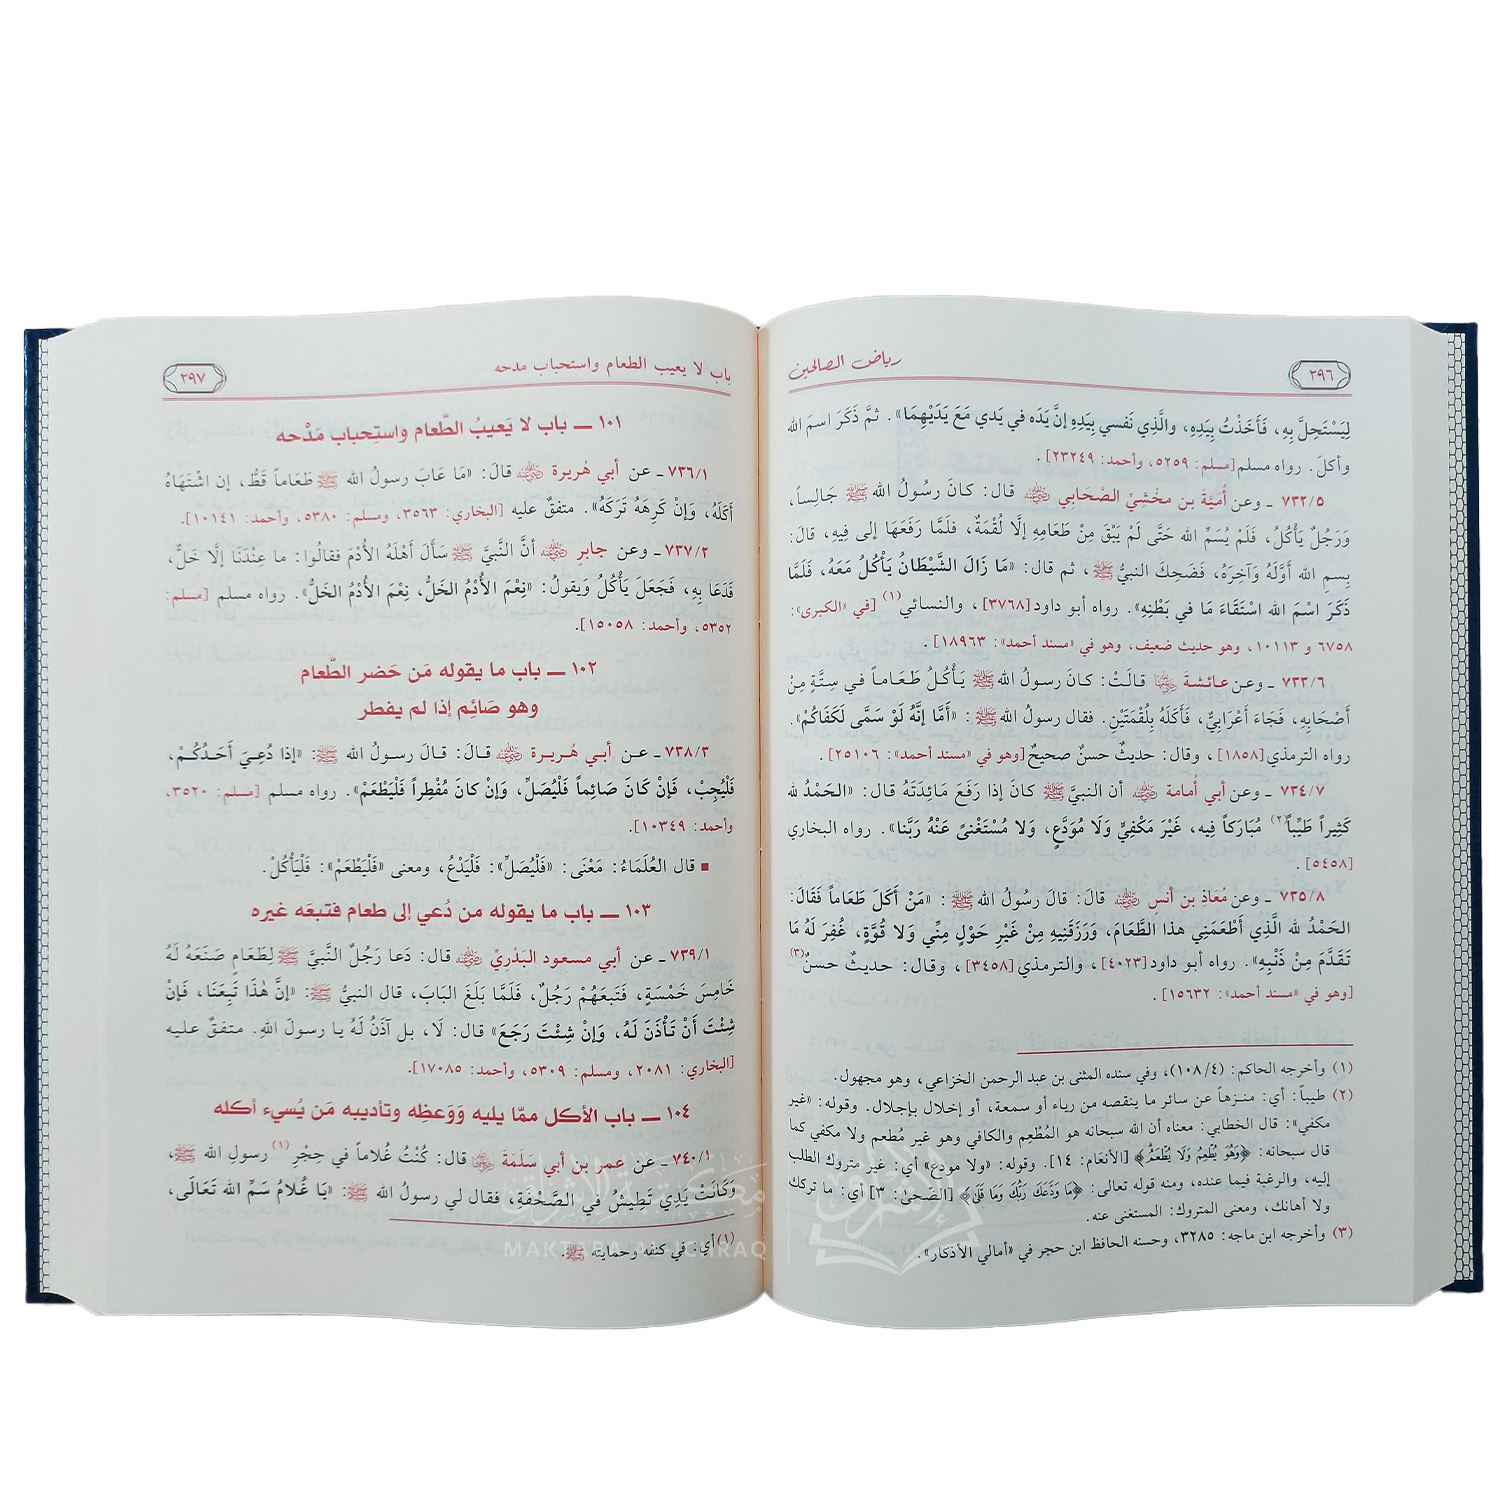 رياض الصالحين
٢٩٦
لِيَسْتَحِلَّ بِهِ، فَأَخَذْتُ بِيَدِهِ، والَّذِي نَفسي بِيَدِهِ إنَّ يَدَه في يَدي مَعَ يَدَيْهِمَا». ثمَّ ذَكَرَ اسمَ الله
وأكلَ. رواه مسلم [مسلم: ٥٢٥٩، وأحمد: ٢٣٢٤٩].
٧٣٢/٥ ـ وعن أُمَيَّةَ بن مخْشِيٍّ الصَّحَابي رضي الله عنه قال: كانَ رسُولُ الله ﷺ جَالِساً،
وَرَجُلٌ يَأْكُلُ، فَلَمْ يُسَمِّ الله حَتَّى لَمْ يَبْقَ مِنْ طَعَامِهِ إلَّا لُقْمَةٌ، فلَمَّا رَفَعَهَا إلى فِيهِ، قالَ:
بِسمِ الله أَوَّلَهُ وَآخِرَهُ، فَضَحِكَ النبيُّ ﷺ، ثم قال: «مَا زَالَ الشَّيْطَانُ يَأْكُلُ مَعَهُ، فَلَمَّا
ذَكَرَ اسْمَ الله اسْتَقَاءَ مَا في بَطْنِهِ». رواه أبو داود [٣٧٦٨]، والنسائي(١) [في «الكبرى»:
٦٧٥٨ و ١٠١١٣، وهو حديث ضعيف، وهو في «مسند أحمد»: ١٨٩٦٣].
٧٣٣/٦ ـ وعن عائشةَ رضي الله عنها قالَتْ: كانَ رسولُ الله ﷺ يَأْكُلُ طَعَاماً في سِتَّةٍ مِنْ
أصْحَابِهِ، فَجَاءَ أعْرَابِيٌّ، فَأكَلَهُ بِلُقْمَتَيْنِ. فقال رسولُ الله ﷺ: «أمَا إنَّهُ لَوْ سَمَّى لَكَفَاكُمْ».
رواه الترمذي [١٨٥٨]، وقال: حديثٌ حسنٌ صحيحٌ [وهو في «مسند أحمد»: ٢٥١٠٦].
٧٣٤/٧ ـ وعن أبي أُمامة رضي الله عنه أن النبيَّ ﷺ كانَ إذا رَفَعَ مَائِدَتَهُ قال: «الحَمْدُ لله
كَثِيراً طَيِّباً(٢) مُبَارَكاً فِيه، غَيْرَ مَكْفِيٍّ وَلَا مُوَدَّعٍ، وَلا مُسْتَغْنىً عَنْهُ رَبَّنا». رواه البخاري
[٥٤٥٨].
٧٣٥/٨ ـ وعن مُعَاذِ بن أنسٍ رضي الله عنه قالَ: قالَ رسُولُ الله ﷺ: «مَنْ أكَلَ طَعَاماً فَقَالَ:
الحَمْدُ لله الَّذِي أطْعَمَنِي هذا الطَّعَامَ، وَرَزَقَنِيهِ مِنْ غَيْرِ حَوْلٍ مِنِّي وَلا قُوَّةٍ، غُفِرَ لَهُ مَا
تَقَدَّمَ مِنْ ذَنْبِهِ». رواه أبو داود [٤٠٢٣]، والترمذي [٣٤٥٨]، وقال: حديثٌ حسنٌ(٣)
[وهو في «مسند أحمد»: ١٥٦٣٢].
(١) وأخرجه الحاكم: (١٠٨/٤)، وفي سنده المثنى بن عبد الرحمن الخزاعي، وهو مجهول.
(٢) طيباً: أي: منزهاً عن سائر ما ينقصه من رياء أو سمعة، أو إخلال بإجلال. وقوله: «غير
مكفي»: قال الخطابي: معناه أن الله سبحانه هو المُطْعِم والكافي وهو غير مُطعم ولا مكفي كما
قال سبحانه: ﴿وَهُوَ يُطْعِمُ وَلَا يُطْعَمُ﴾ [الأنعَام: ١٤]. وقوله: «ولا مودع» أي: غير متروك الطلب
إليه، والرغبة فيما عنده، ومنه قوله تعالى: ﴿مَا وَدَّعَكَ رَبُّكَ وَمَا قَلَىٰ﴾ [الضّحىٰ: ٣] أي: ما تركك
ولا أهانك، ومعنى المتروك: المستغنى عنه.
(٣) وأخرجه ابن ماجه: ٣٢٨٥، وحسنه الحافظ ابن حجر في «أمالي الأذكار».
باب لا يعيب الطعام واستحباب مدحه
٢٩٧
١٠١ ـ باب لا يَعيبُ الطّعام واستِحباب مَدْحه
٧٣٦/١ ـ عن أبي هُريرة رضي الله عنه قالَ: «مَا عَابَ رسولُ الله ﷺ طَعَاماً قَطُّ، إن اشْتَهَاهُ
أكَلَهُ، وَإنْ كَرِهَهُ تَرَكَهُ». متفقٌ عليه [البخاري: ٣٥٦٣، ومسلم: ٥٣٨٠، وأحمد: ١٠١٤١].
٧٣٧/٢ ـ وعن جابرٍ رضي الله عنه أنَّ النَّبيَّ ﷺ سَأَلَ أهْلَهُ الأُدْمَ فقالُوا: ما عِنْدَنَا إلَّا خَلٌّ،
فَدَعَا بِهِ، فَجَعَلَ يَأْكُلُ وَيقولُ: «نِعْمَ الأُدْمُ الخَلُّ، نِعْمَ الأُدْمُ الخَلُّ». رواه مسلم [مسلم:
٥٣٥٢، وأحمد: ١٥٠٥٨].
١٠٢ ـ باب ما يقوله مَن حَضر الطّعام
وهو صَائِم إذا لم يفطر
٧٣٨/٣ ـ عن أبي هُريرة رضي الله عنه قالَ: قالَ رسولُ الله ﷺ: «إذا دُعِيَ أَحَدُكُمْ،
فَلْيُجِبْ، فَإنْ كَانَ صَائِماً فَلْيُصَلِّ، وَإنْ كانَ مُفْطِراً فَلْيَطْعَمْ». رواه مسلم [مسلم: ٣٥٢٠،
وأحمد: ١٠٣٤٩].
■ قال العُلَمَاءُ: مَعْنَى: «فَلْيُصَلِّ»: فَلْيَدْعُ، ومعنى «فَلْيَطْعَمْ»: فَلْيَأْكُلْ.
١٠٣ ـ باب ما يقوله من دُعي إلى طعام فتبعَه غيره
٧٣٩/١ ـ عن أبي مسعود البَدْرِيِّ رضي الله عنه قال: دَعا رَجُلٌ النَّبيَّ ﷺ لِطَعَامٍ صَنَعَهُ لَهُ
خَامِسَ خَمْسَةٍ، فَتَبعَهُمْ رَجُلٌ، فَلَمَّا بَلَغَ البَابَ، قال النبيُّ ﷺ: «إنَّ هٰذَا تَبِعَنَا، فَإنْ
شِئْتَ أنْ تَأْذَنَ لَهُ، وَإنْ شِئْتَ رَجَعَ» قال: لَا، بل آذَنُ لَهُ يا رسولَ اللهِ. متفقٌ عليه
[البخاري: ٢٠٨١، ومسلم: ٥٣٠٩، وأحمد: ١٧٠٨٥].
١٠٤ ـ باب الأكل ممّا يليه وَوَعظِه وتأديبه مَن يُسيء أكله
٧٤٠/١ ـ عن عمر بن أبي سَلَمَةَ رضي الله عنه قال: كُنْتُ غُلاماً في حِجْرِ(١) رسولِ الله ﷺ،
وَكَانَتْ يَدِي تَطِيشُ في الصَّحْفَةِ، فقال لي رسولُ الله ﷺ: «يَا غُلامُ سَمِّ الله تَعَالَى،
(١) أي: في كنفه وحمايته ﷺ.
مكتبة الإشراق
MAKTABA AL ICHRAQ